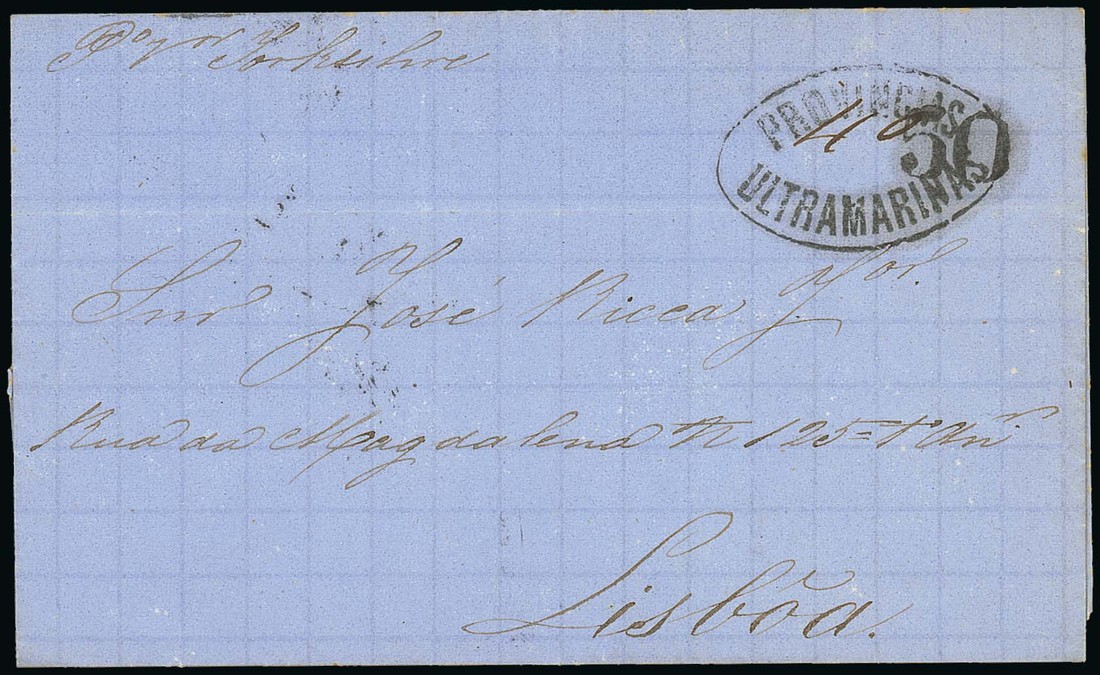 Por Yorkshire
PROVINCIAS
40
50
ULTRAMARINAS
Snr José Ricca Jor.
Rua da Magdalena N 125 = 1º Anr
Lisbõa.